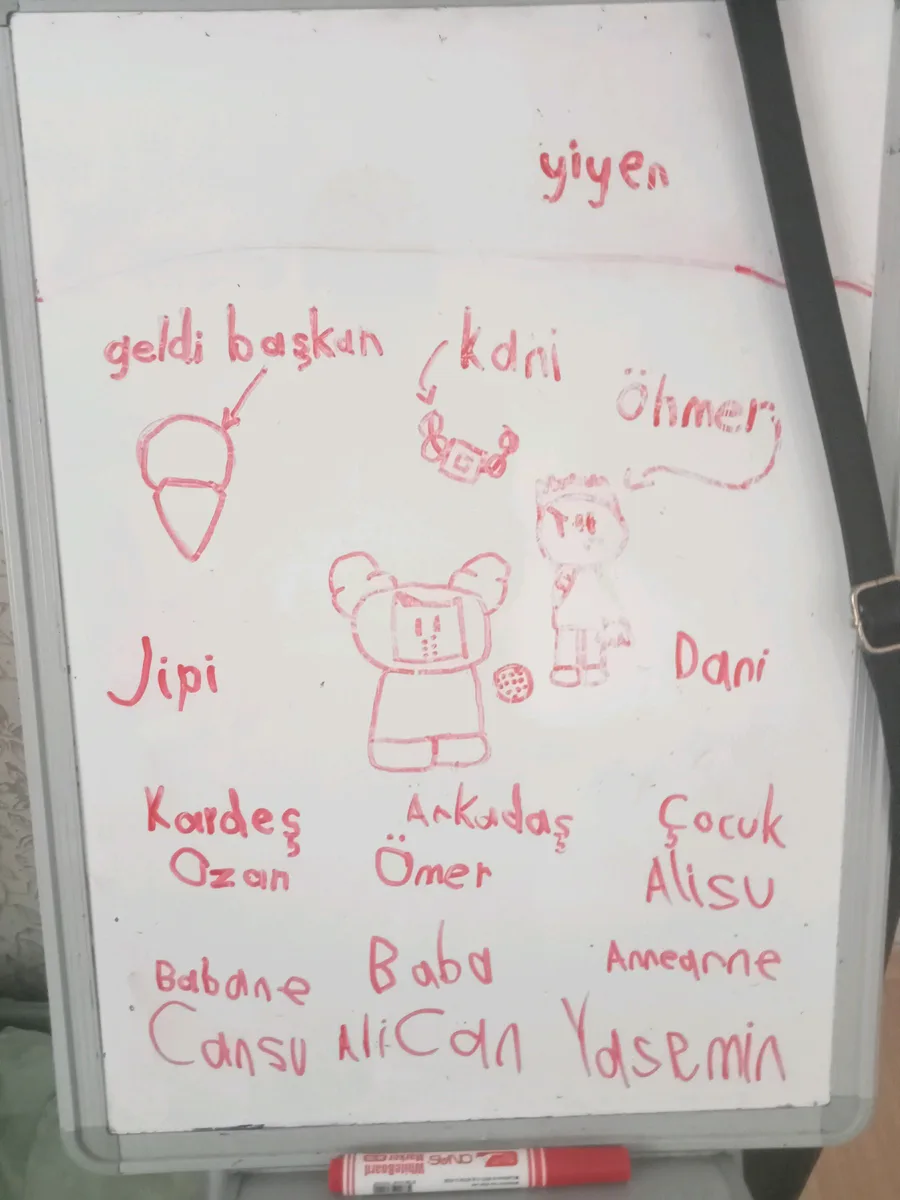 yiyen
geldi başkan
Kani
Öhmer
Jipi
Dani
Kardeş Arkadaş Çocuk
Ozan Ömer Alisu
Babane Baba Anneanne
Cansu AliCan Yasemin
WhiteBoard
Marker